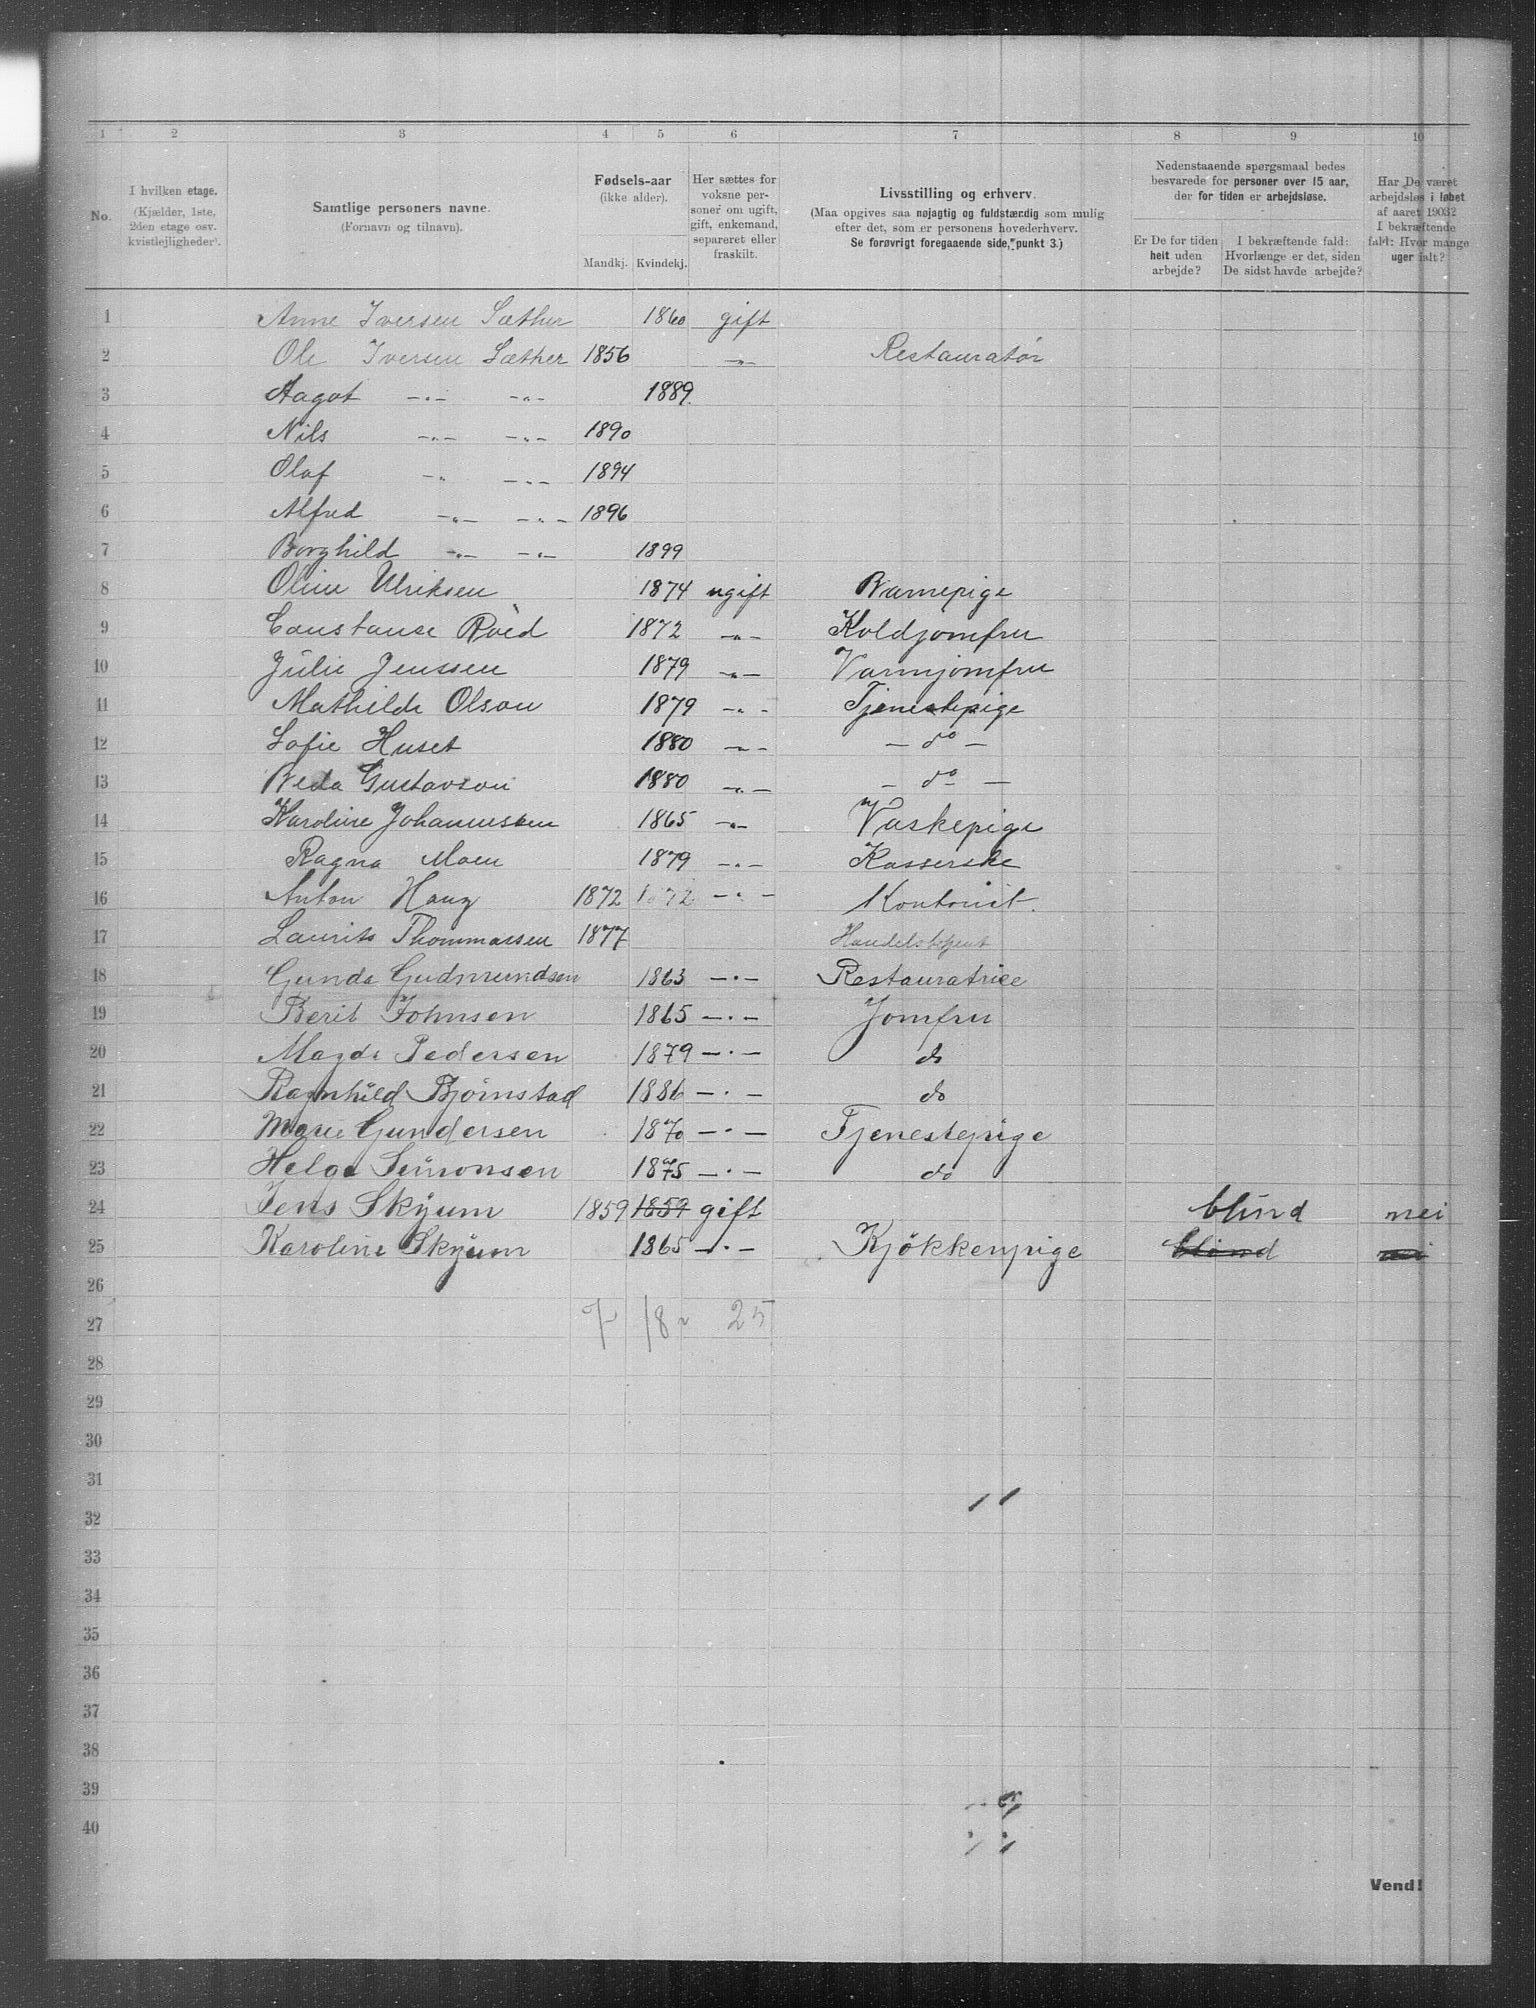 1 2 3 4 5 6 7 8 9 10
No.
I hvilken etage.
(Kjælder, 1ste, 2den etage osv. kvistlejligheder).
Samtlige personers navne.
(Fornavn og tilnavn).
Fødsels-aar
(ikke alder).
Mandkj. Kvindekj.
Her sættes for voksne personer om ugift, gift, enkemand, separeret eller fraskilt.
Livsstilling og erhverv.
(Maa opgives saa nøjagtig og fuldstændig som mulig efter det, som er personens hovederhverv.
Se forøvrigt foregaaende side, punkt 3.)
Nedenstaaende spørgsmaal bedes besvarede for personer over 15 aar, der for tiden er arbejdsløse.
Er De for tiden helt uden arbejde?
I bekræftende fald: Hvorlænge er det, siden De sidst havde arbejde?
Har De været arbejdsløs i løbet af aaret 1903? I bekræftende fald: Hvor mange uger ialt?
1 Anne Iversen Sæther 1860 gift
2 Ole Iversen Sæther 1856 -"- Restauratør
3 Aagot -"- -"- 1889.
4 Nils -"- -"- 1890
5 Olaf -"- -"- 1894
6 Alfred -"- -"- 1896
7 Borghild -"- -"- 1899
8 Oline Ulriksen 1874 ugift Barnepige
9 Constanse Roéd 1872 -"- Koldjomfru
10 Julie Jenssen 1879 -"- Varmjomfru
11 Mathilde Olsen 1879 -"- Tjenestepige
12 Sofie Huset 1880 -"- - do -
13 Beda Gustavson 1880 -"- - do -
14 Karoline Johannessen 1865 -"- Vaskepige
15 Ragna Moen 1879 -"- Kasserske
16 Anton Haug 1872 1872 -"- Kontorist.
17 Laurits Thommassen 1877 Handelsbetjent
18 Gunda Gudmundsen 1863 -"- Restauratrice
19 Berit Johnsen 1865 -"- Jomfru
20 Magda Pedersen 1879 -"- do
21 Ragnhild Bjørnstad 1886 -"- do
22 Marie Gundersen 1870 -"- Tjenestepige
23 Helga Simonsen 1875 -"- do
24 Jens Skyum 1859 1859 gift blind nei
25 Karoline Skyum 1865 -"- Kjøkkenpige blind nei
26
27 7 18 25
28
29
30
31
32
33
34
35
36
37
38
39
40
Vend!